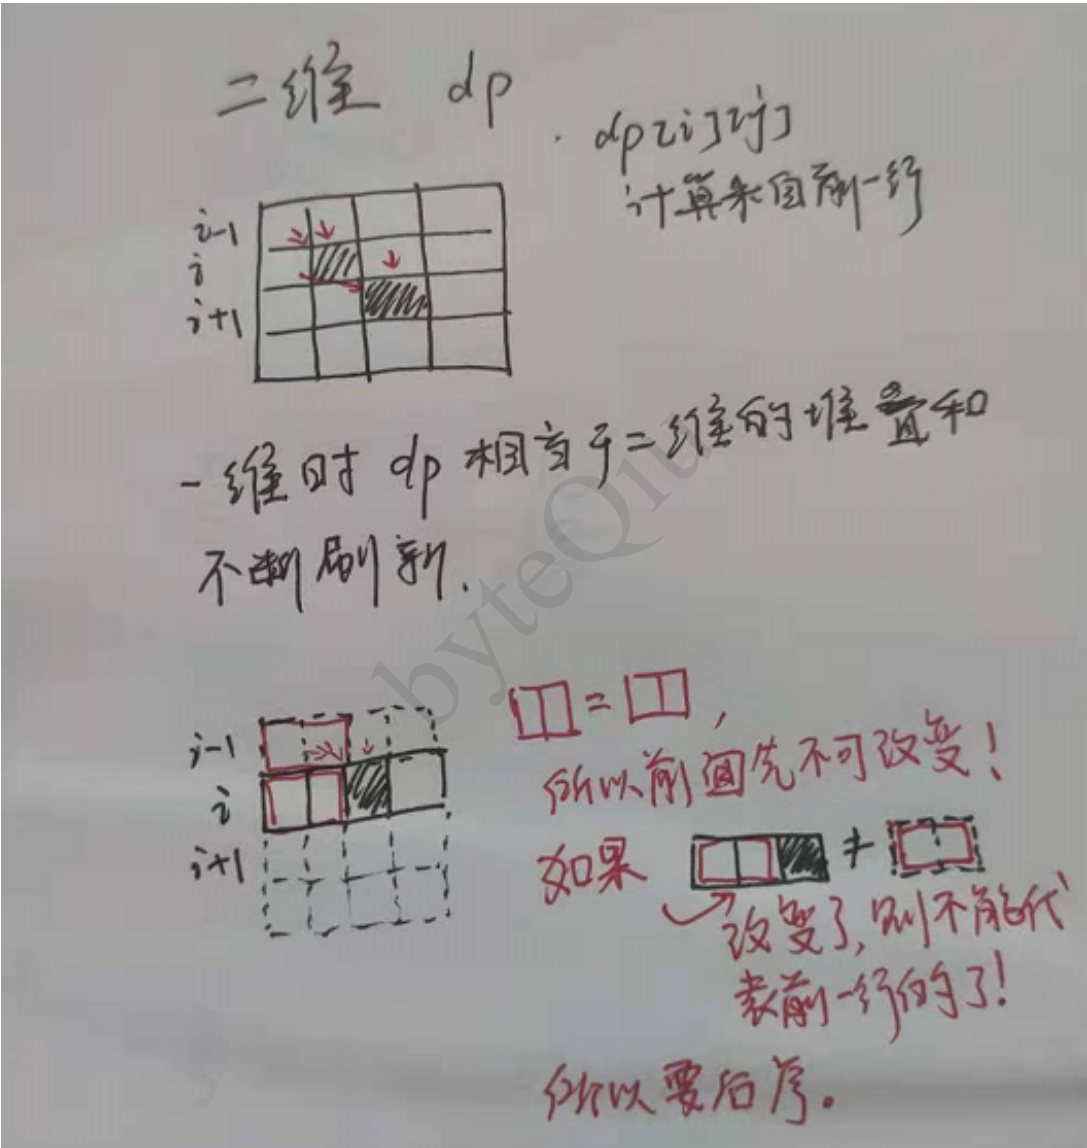 二维 dp
dp[i][j]
计算来自前一行
i-1
i
i+1
一维时 dp 相当于二维的堆叠和
不断刷新.
byteQiu
i-1
i
i+1
=
,
所以前面先不可改变!
如果 ≠
改变了,则不能代
表前一行的了!
所以要后序。